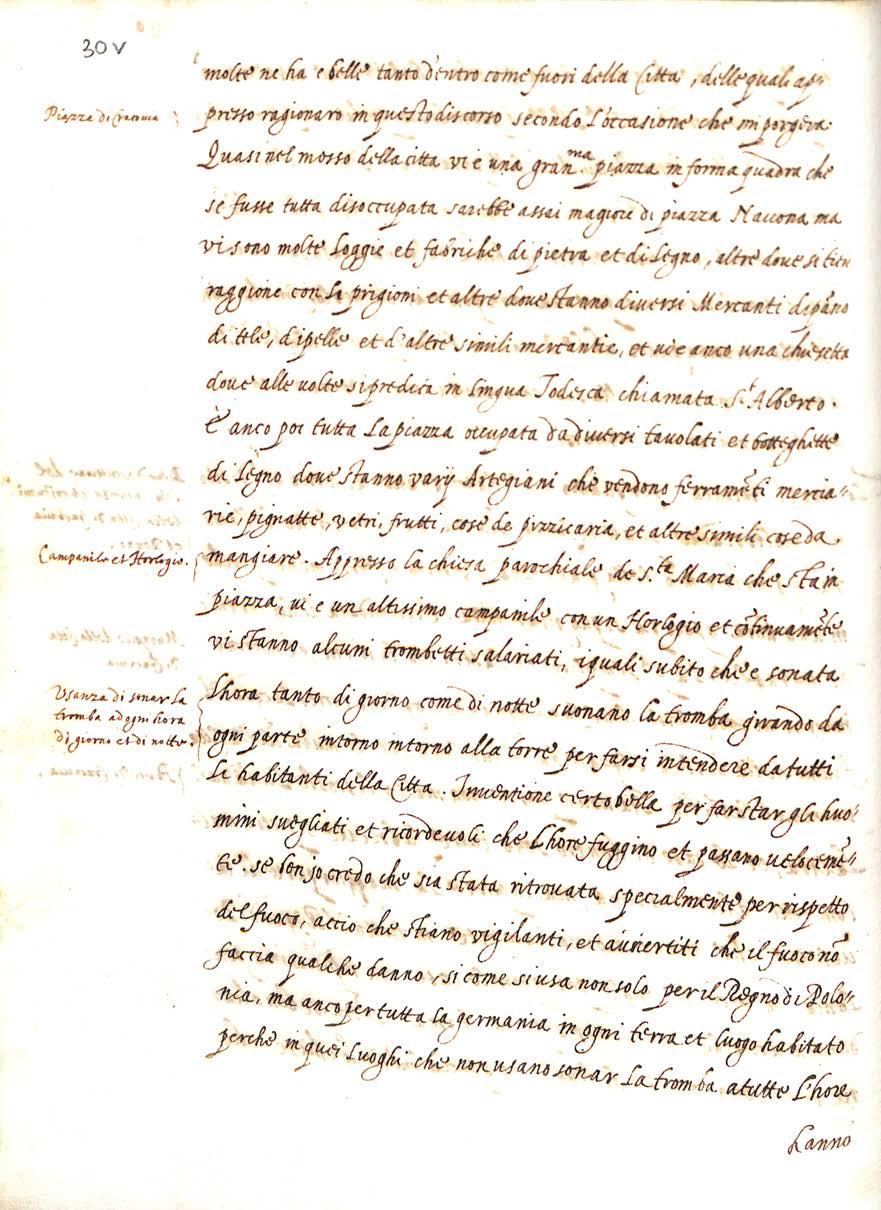 30 v
molte ne ha e belle tanto dentro come fuori della Citta, delle quali ap=
Piazza di Cracovia
presso ragionaro in questo discorso secondo l'occasione che mi porgera.
Quasi nel mosso della citta vi e una gran.ma piazza in forma quadra che
se fusse tutta disoccupata sarebbe assai magiore di piazza Nauona ma
vi sono molte loggie et fabriche di pietra et di legno, altre dove si tien
raggione con le prigioni et altre dove stanno diversi Mercanti di pãno
di tele, di pelle et d'altre simili mercantie, et vi e anco una chiesetta
dove alle volte si predica in lingua Todesca chiamata S.t Alberto.
È anco poi tutta la piazza occupata da diversi tavolati et botteghette
di legno dove stanno varij Artegiani che vendono ferramẽti mercia=
rie, pignatte, vetri, frutti, cose de pizzicaria, et altre simili cose da
Campanile et Horlogio.
mangiare. Appresso la chiesa parochiale de S.ta Maria che sta in
piazza, vi e un altissimo campanile con un Horlogio et cõtinuamẽte
vi stanno alcuni trombetti salariati, i quali subito che e sonata
Usanza di sonar la
tromba ad ogni hora
di giorno et di notte.
l'hora tanto di giorno come di notte suonano la tromba girando da
ogni parte intorno intorno alla torre per farsi intendere da tutti
li habitanti della Citta. Inventione certo bella per far star gli huo=
mini svegliati et ricordevoli che l'hore fuggino et passano velocemẽ=
te. se ben io credo che sia stata ritrovata specialmente per rispetto
del fuoco, accio che stiano vigilanti, et avvertiti che il fuoco nõ
faccia qualche danno, si come si usa non solo per il Regno di Polo=
nia, ma anco per tutta la germania in ogni terra et luogo habitato
perche in quei luoghi che non usano sonar la tromba a tutte l'hore
hanno